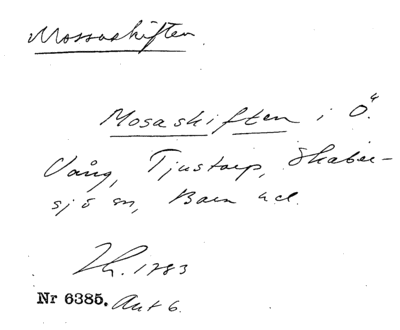 Mossaskiften.
Mosaskiften i Ö.
Vång, Tjustorp, Skaber-
sjö sn, Bara hd.
1783
Nr 6385. Akt 6.